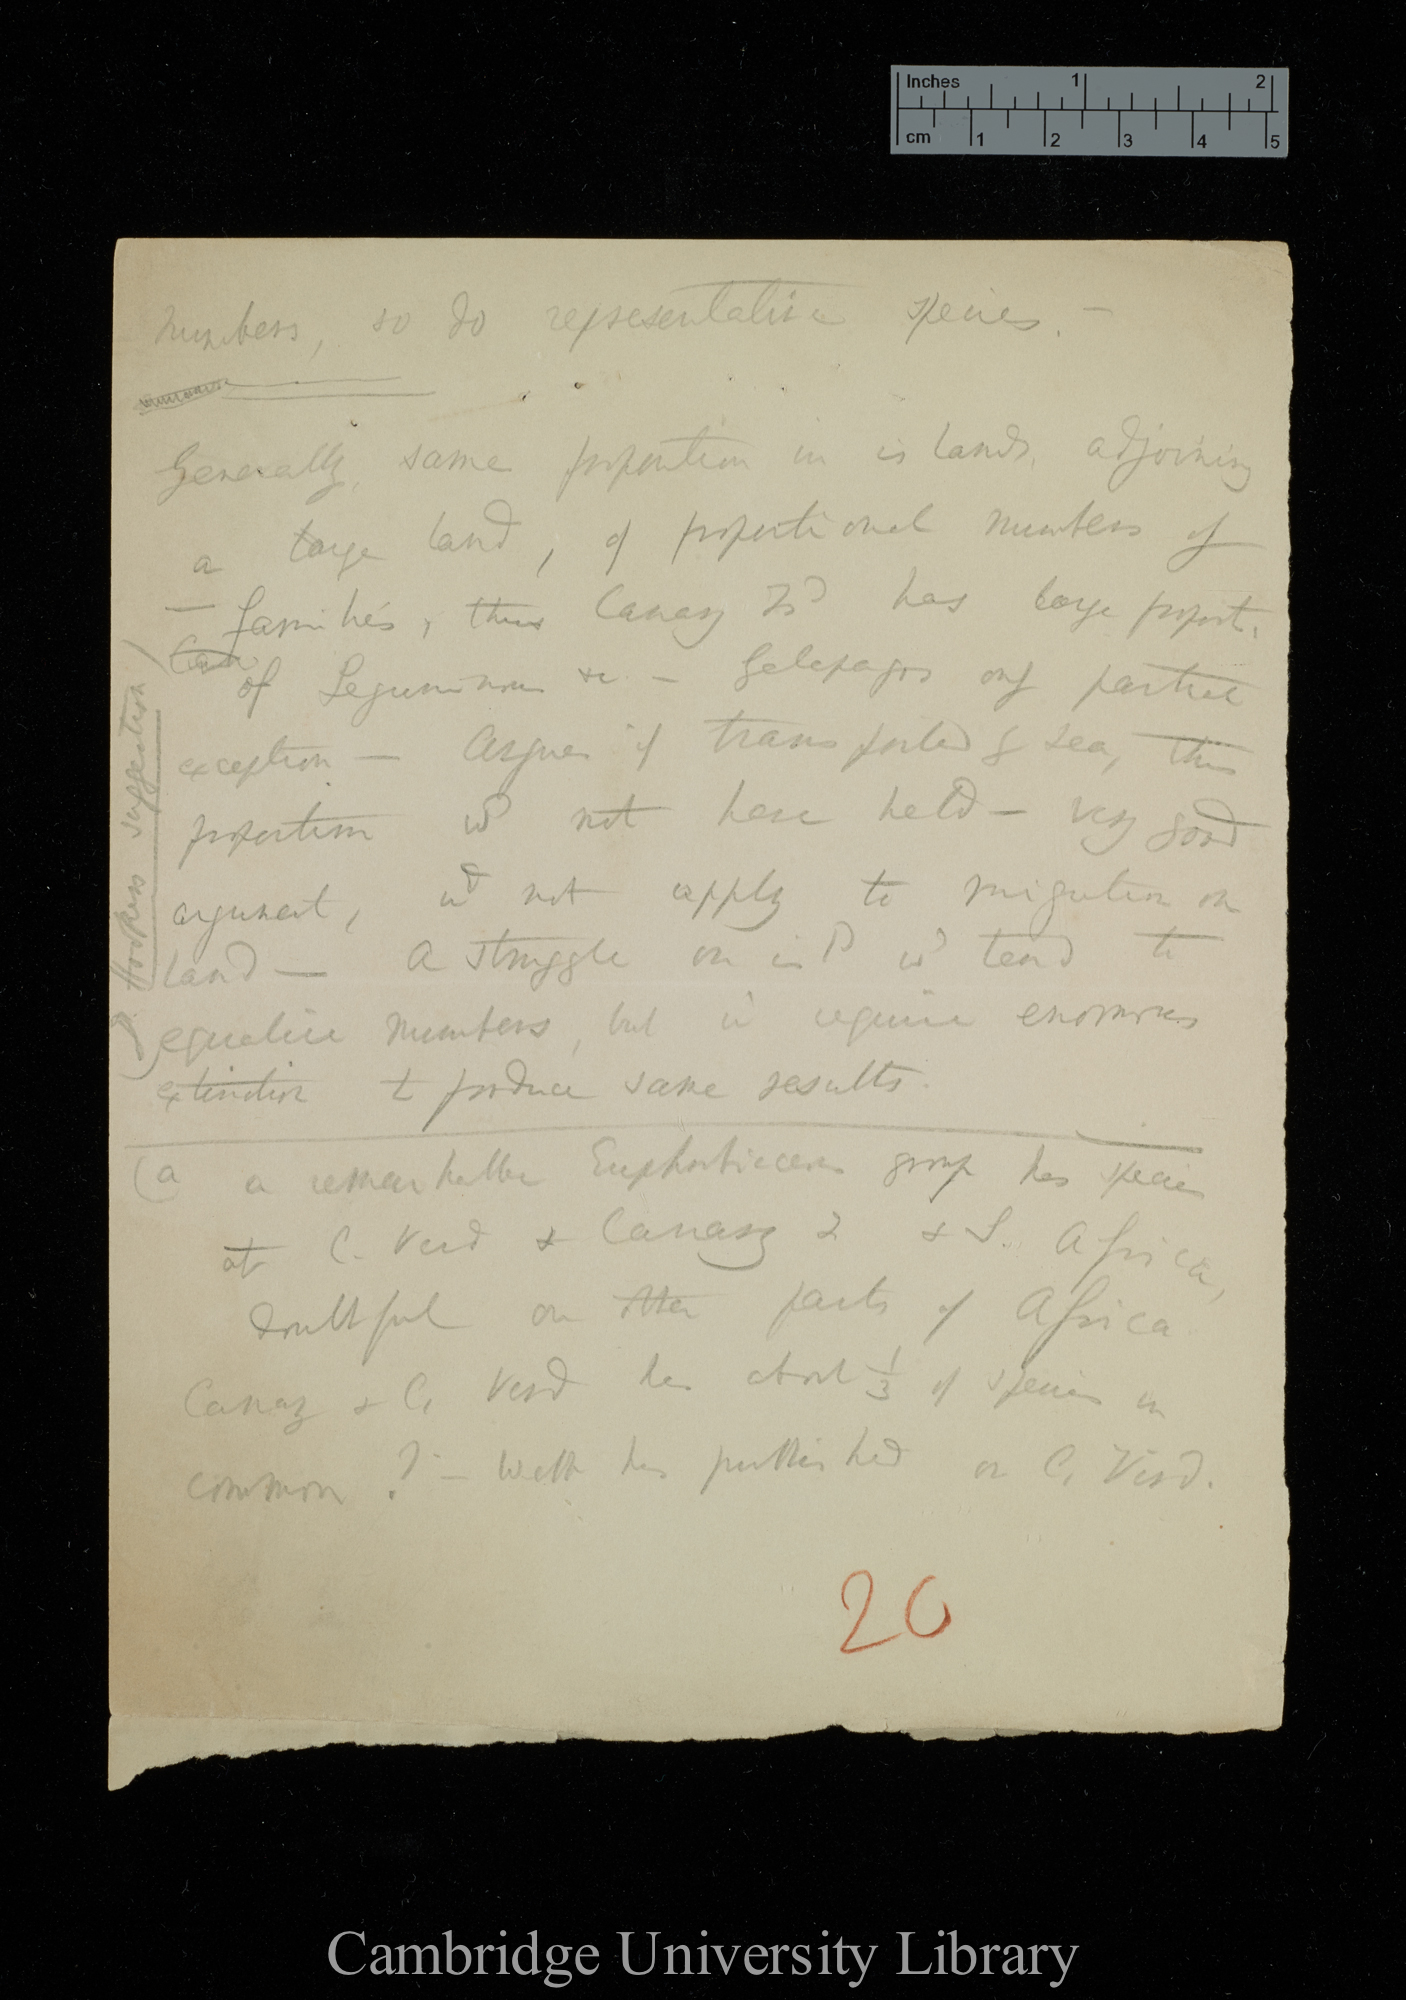 Inches 1 2
cm 1 2 3 4 5
numbers, so do representative species. —
Generally, same proportion in islands, adjoining
a large land, of proportional numbers of
— families, thus Canary Isd has large proport.
of Leguminous &c — Galapagos only partial
exception — Argues if transported by sea, this
proportion wd not have held — very good
argument, wd not apply to migration on
land — A struggle on isld wd tend to
equalise numbers, but wd require enormous
extinction to produce same results.
(Dr Hookers suggestion)
(a a remarkable Euphorbiaceous group has species
at C. Verd & Canary I & S. Africa,
doubtful on other parts of Africa
Canary & C. Verd has about 1/3 of species in
common? — Webb has published on C. Verd.
20
Cambridge University Library